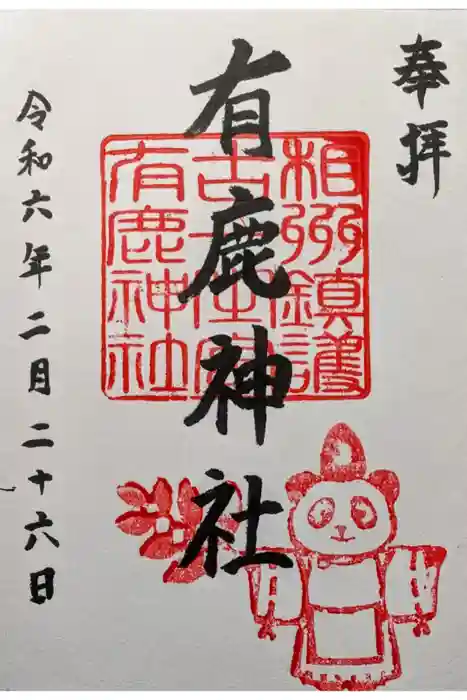 奉拝
有鹿神社
令和六年二月二十六日
相州鎮護
有鹿神社